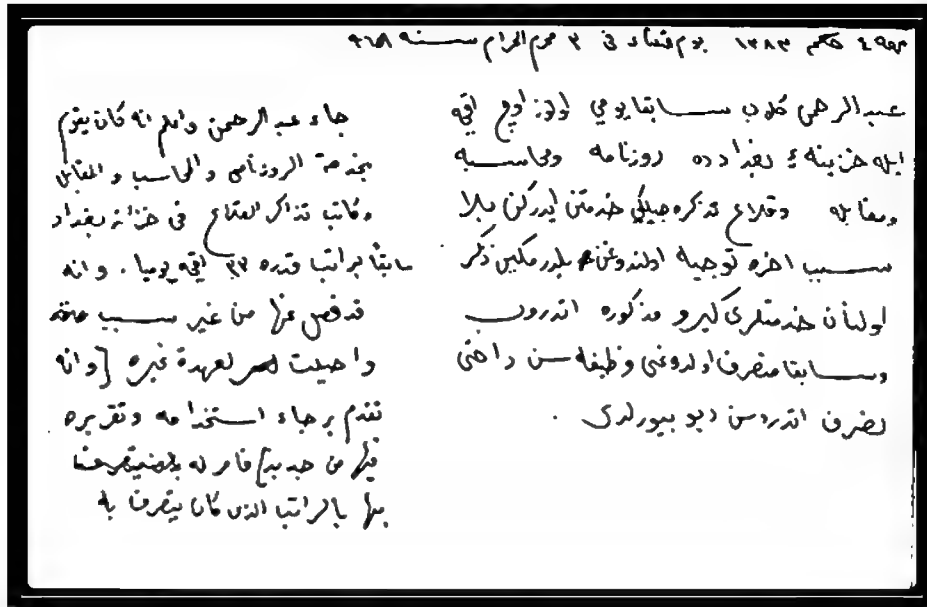 حكم ١٢٨٣ يوم في ٣ محرم الحرام سنه ٩٦٨
عبد الرحمن كلوب سابقا يومي اوتوز اوچ اقچه
ايله خزينهٔ بغداد ده روزنامه ومحاسبه
ومقابله وقلاع تذكره جيلكي خدمتن ايدركن بلا
سبب اخره توجيه اولندوغن بلدرمكين ذكر
اولنان خدمتلری گيرو مذكوره اتدروب
وسابقا متصرف اولدوغی وظيفه سن داخی
تصرف اتدرسن ديو بيورلدی .
جاء عبد الرحمن واعلم انه كان يقوم
بخدمة الروزنامي والمحاسب والمقابل
وكاتب تذاكر القلاع في خزانة بغداد
سابقا براتب قدره ٣٣ اقچه يوميا . وانه
قد فصل عنها من غير سبب
واحيلت لعهدة غيره [وانه
تقدم برجاء استخدامه وتقريره
فيها من جديد] فامر له
بها بالراتب الذي كان يتصرف به